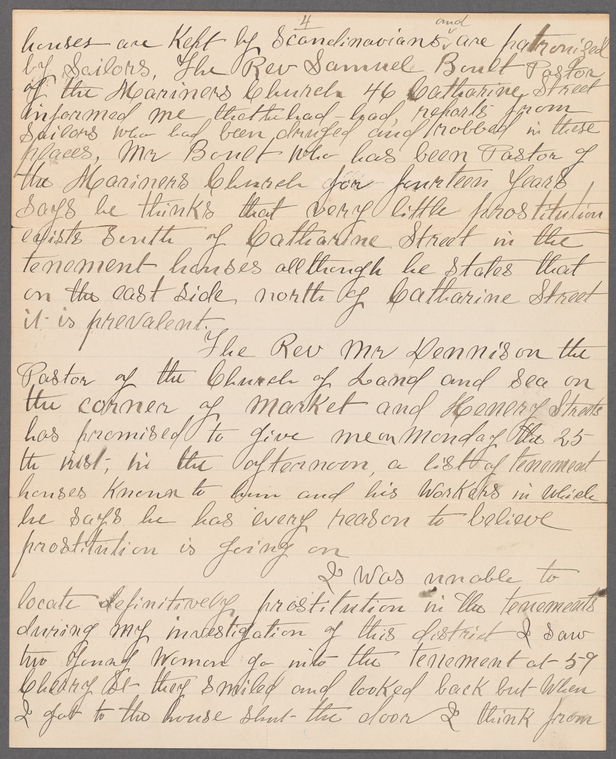 4
houses are Kept by Scandinavians and are patronised
by Sailors, The Rev Samuel Boult Pastor
of the Mariners Church 46 Catharine Street
informed me that he had had reports from
Sailors who had been druged and robbed in these
places, Mr Boult who has been Pastor of
the Mariners Church for fourteen Years
says he thinks that very little prostitution
exists South of Catharine Street in the
tenement houses allthough he states that
on the east side north of Catharine Street
it is prevalent.
The Rev Mr Dennison the
Pastor of the Church of Land and Sea on
the corner of Market and Henery Streets
has promised to give me on Monday the 25
th inst, in the afternoon, a list of tenement
houses Known to him and his Workers in which
he says he has every reason to believe
prostitution is going on
I was unable to
locate definitively prostitution in the tenements
during my investigation of this district I saw
two Young Women go into the tenement at 59
Cheary St they smiled and looked back but When
I got to the house shut the door I think from